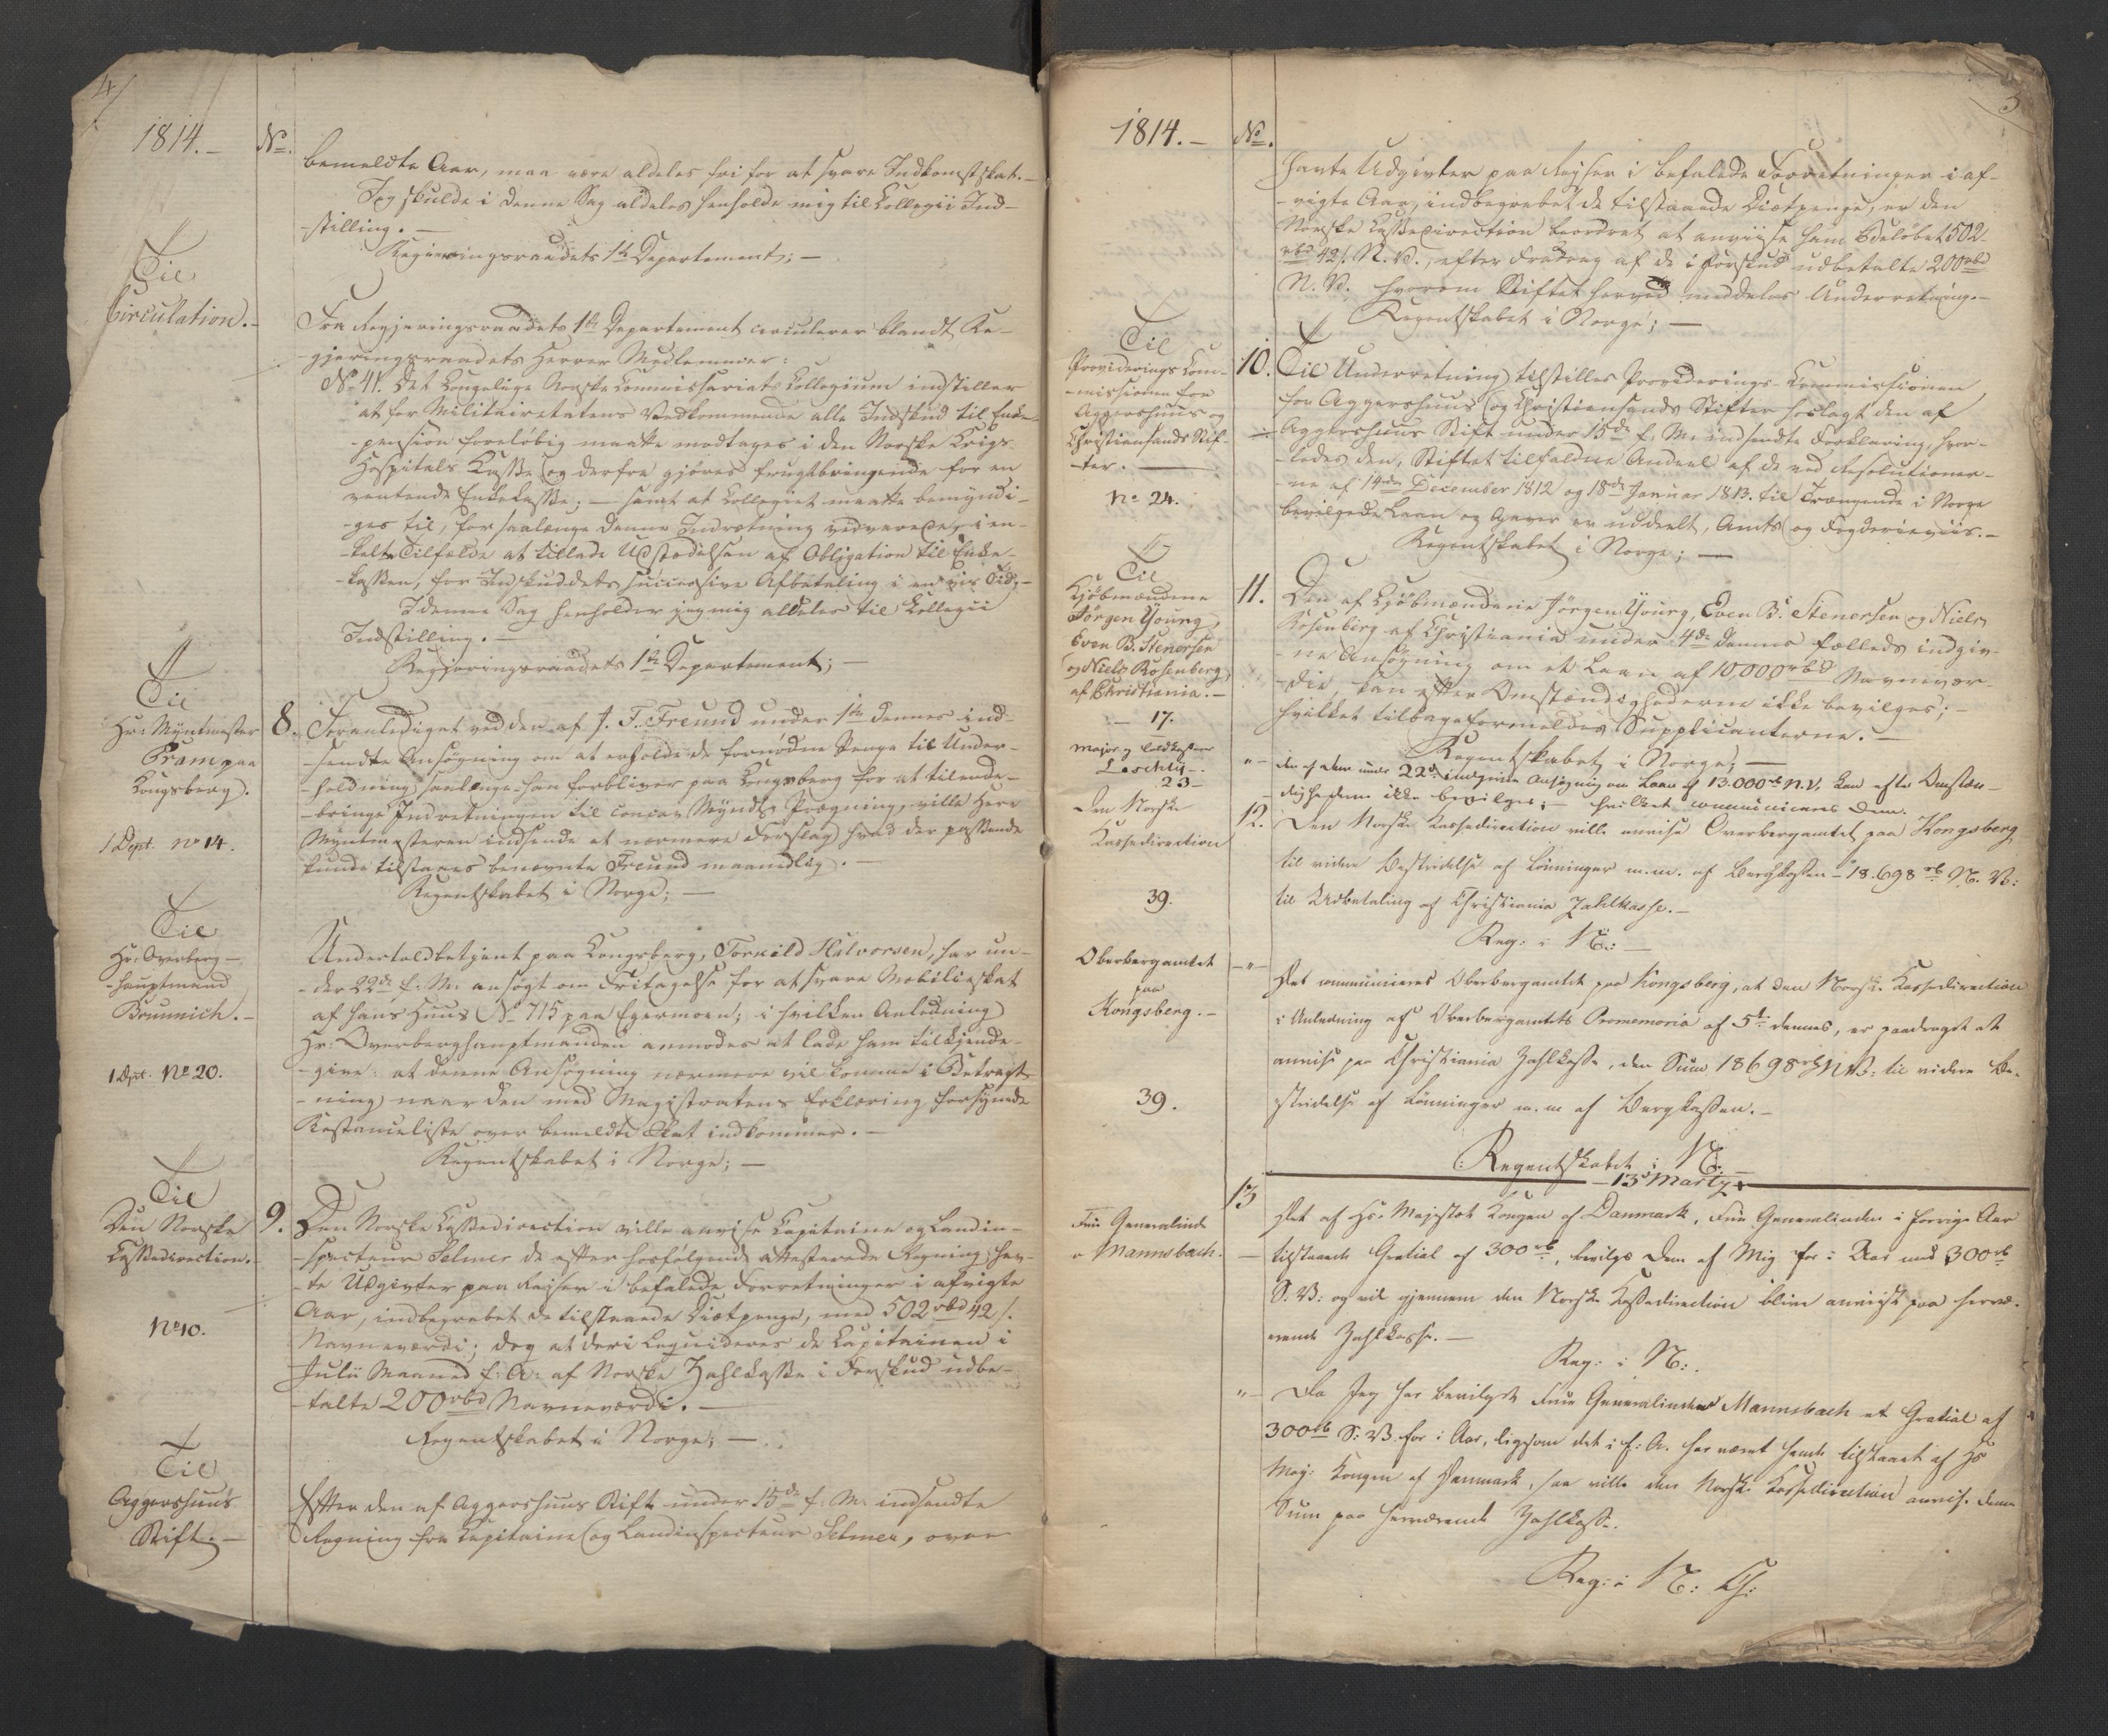 4
1814.- No.
bemeldte Aar, maa være aldeles fri for at svare Indkomstskat.-
Jeg skulde i denne Sag aldeles henholde mig til Collegii Ind-
-stilling.-
Regieringsraadets 1ste Departement;-
Til
Circulation.-
Fra Regjeringsraadets 1ste Departement circulerer blandt Re-
gjeringsraadets Herrer Medlemmer:
No 41. Det Kongelige Norske Commissariats Collegium indstiller
at for Militairetatens Vedkommende alle Indskud til Enke-
-pension foreløbig maatte modtages i den Norske Krigs-
Hospitals Kasse og derfra gjøres frugtbringende for en
ventende Enkekasse;- samt at Collegiet maatte bemyndi-
-ges til, for saalænge denne Indretning vedvarer, i en-
-kelte Tilfælde at tillade Udstædelsen af Obligation til Enke-
-kassen, for Indskuddets successive Afbetaling i en vis Tid;-
I denne Sag henholder jeg mig aldeles til Collegii
Indstilling.-
Regjeringsraadets 1ste Departement;-
Til
Hr: Myntmester
Pram paa
Kongsberg.
1 Dept. No 14.
8. Foranlediget ved den af J. F. Freund under 1ste dennes ind-
-sendte Ansøgning om at erholde de fornødne Penge til Under-
-holdning, saalænge han forbliver paa Kongsberg for at tilende-
-bringe Indretningen til concav Myndts Prægning, ville Herr
Myntmesteren indsende et nærmere Forslag, hvad der passende
kunde tilstaaes benævnte Freund maanedlig.-
Regentskabet i Norge;-
Til
Hr: Overberg-
-hauptmand
Brunnich.-
1 Dpt. No 20.
Undertoldbetjent paa Kongsberg, Torkild Halvorsen, har un-
-der 22de f: M: ansøgt om Fritagelse for at svare Mobilieskat
af hans Huus No 715 paa Egermoen; i hvilken Anledning
Hr: Overberghauptmanden anmodes at lade ham tilkjende-
-give: at denne Ansøgning nærmere vil komme i Betragt-
-ning naar den med Magistratens Erklæring forsynede
Restanceliste over bemeldte Skat indkommer.-
Regentskabet i Norge;-
Til
Den Norske
Cassedirection.-
No 10.
9. Den Norske Cassedirection ville anvise Capitaine og Landin-
-specteur Selmer de efter hosfølgende attesterede Regning hav-
-te Udgivter paa Reiser i befalede Forretninger i afvigte
Aar, indbegrebet de tilstaaede Diætpenge, med 502 rbd 42 s.
Navneværdi; dog at deri liquideres de Capitainen i
Julii Maaned f: A: af Norske Zahlkasse i Forskud udbe-
-talte 200 rbd Navneværdi.-
Regentskabet i Norge;-
Til
Aggershuus
Stift.-
Efter den af Aggershuus Stift under 15de f: M: indsendte
Regning fra Capitaine og Landinspecteur Selmer, over
5
1814.- No.
havte Udgivter paa Reyser i befalede Forretninger i af-
-vigte Aar, indbegrebet de tilstaaede Diætpenge, er den
Norske Cassedirection beordret at anviise ham Beløbet 502
rbd 42 s. N. V., efter Fradrag af de i Forskud udbetalte 200 rbd
N. V. hvorom Stiftet herved meddeles Underretning.-
Regentskabet i Norge;-
Til
Provideerings Com-
-missionen for
Aggershuus og
Christiansands Stif-
-ter.-
No 24.
10. Til Underretning tilstilles Provideerings-Commissionen
for Aggershuus og Christiansands Stifter hoslagt den af
Aggershuus Stift under 15de f. M: indsendte Forklaring, hvor-
-ledes den, Stiftet tilfaldne Andeel af de ved Resolutioner-
-ne af 14de December 1812 og 18de Januar 1813. til Trængende i Norge
bevilgede Laan og Gaver er uddeelt, Amts og Fogderieviis.-
Regentskabet i Norge;-
Til
Kjøbmændene
Jørgen Young,
Even B. Stenersen
og Niels Rosenberg
af Christiania.-
17.
11. Den af Kjøbmændene Jørgen Young, Even B. Stenersen og Niels
Rosenberg af Christiania under 4de dennes fælleds indgiv-
-ne Ansøgning om et Laan af 10,000 rbd Navnevær-
-die, kan efter Omstændighederne ikke bevilges;-
hvilket tilbagemeldes Supplicanterne.-
Regentskabet i Norge;-
Major og Toldkasserer
23
"- den af dem under 22de indgivne Ansøgning om Laan af 13.000 rb N.V. kan efter Omstæn-
-dighederne ikke bevilges;- hvilket communiceres Dem.
Den Norske
Cassedirection
39.
12. Den Norske Cassedirection ville anvise Overbergamtet paa Kongsberg
til videre Bestridelse af Lønninger m.m. af Bergkassen - 18.698 rb N. V:
til Udbetaling af Christiania Zahlkasse.-
Reg: i N:-
Oberbergamtet
paa
Kongsberg.-
39.
-"- Det communiceres Oberbergamtet paa Kongsberg, at den Norske Cassedirection
i Anledning af Oberbergamtets Promemoria af 5te dennes, er paadraget at
anvise paa Christiania Zahlkasse, den Sum 18698 rb NV: til videre Be-
stridelse af Lønninger m.m af Bergkassen.-
Regentskabet i N:-
-13de Martz-
Frue Generalinde
v Mannsbach.
13 Det af Hs. Majestæt Kongen af Danmark, Frue Generalinden i forrige Aar
tilstaaede Gratial af 300 rb, bevilges Dem af Mig for i Aar med 300 rb
S: V: og vil gjennem den Norske Cassedirection blive anviist paa herva-
rende Zahlkasse.-
Reg: i N:.
"- Da Jeg har bevilget Frue Generalinde Mannsbach et Gratial af
300 rb S: V. for i Aar, ligesom det i f: A. har været hende tilstaaet af Hs
Maj: Kongen af Danmark, saa ville den Norske Cassedirection anvise denne
Sum paa herværende Zahlkasse.
Reg: i N: